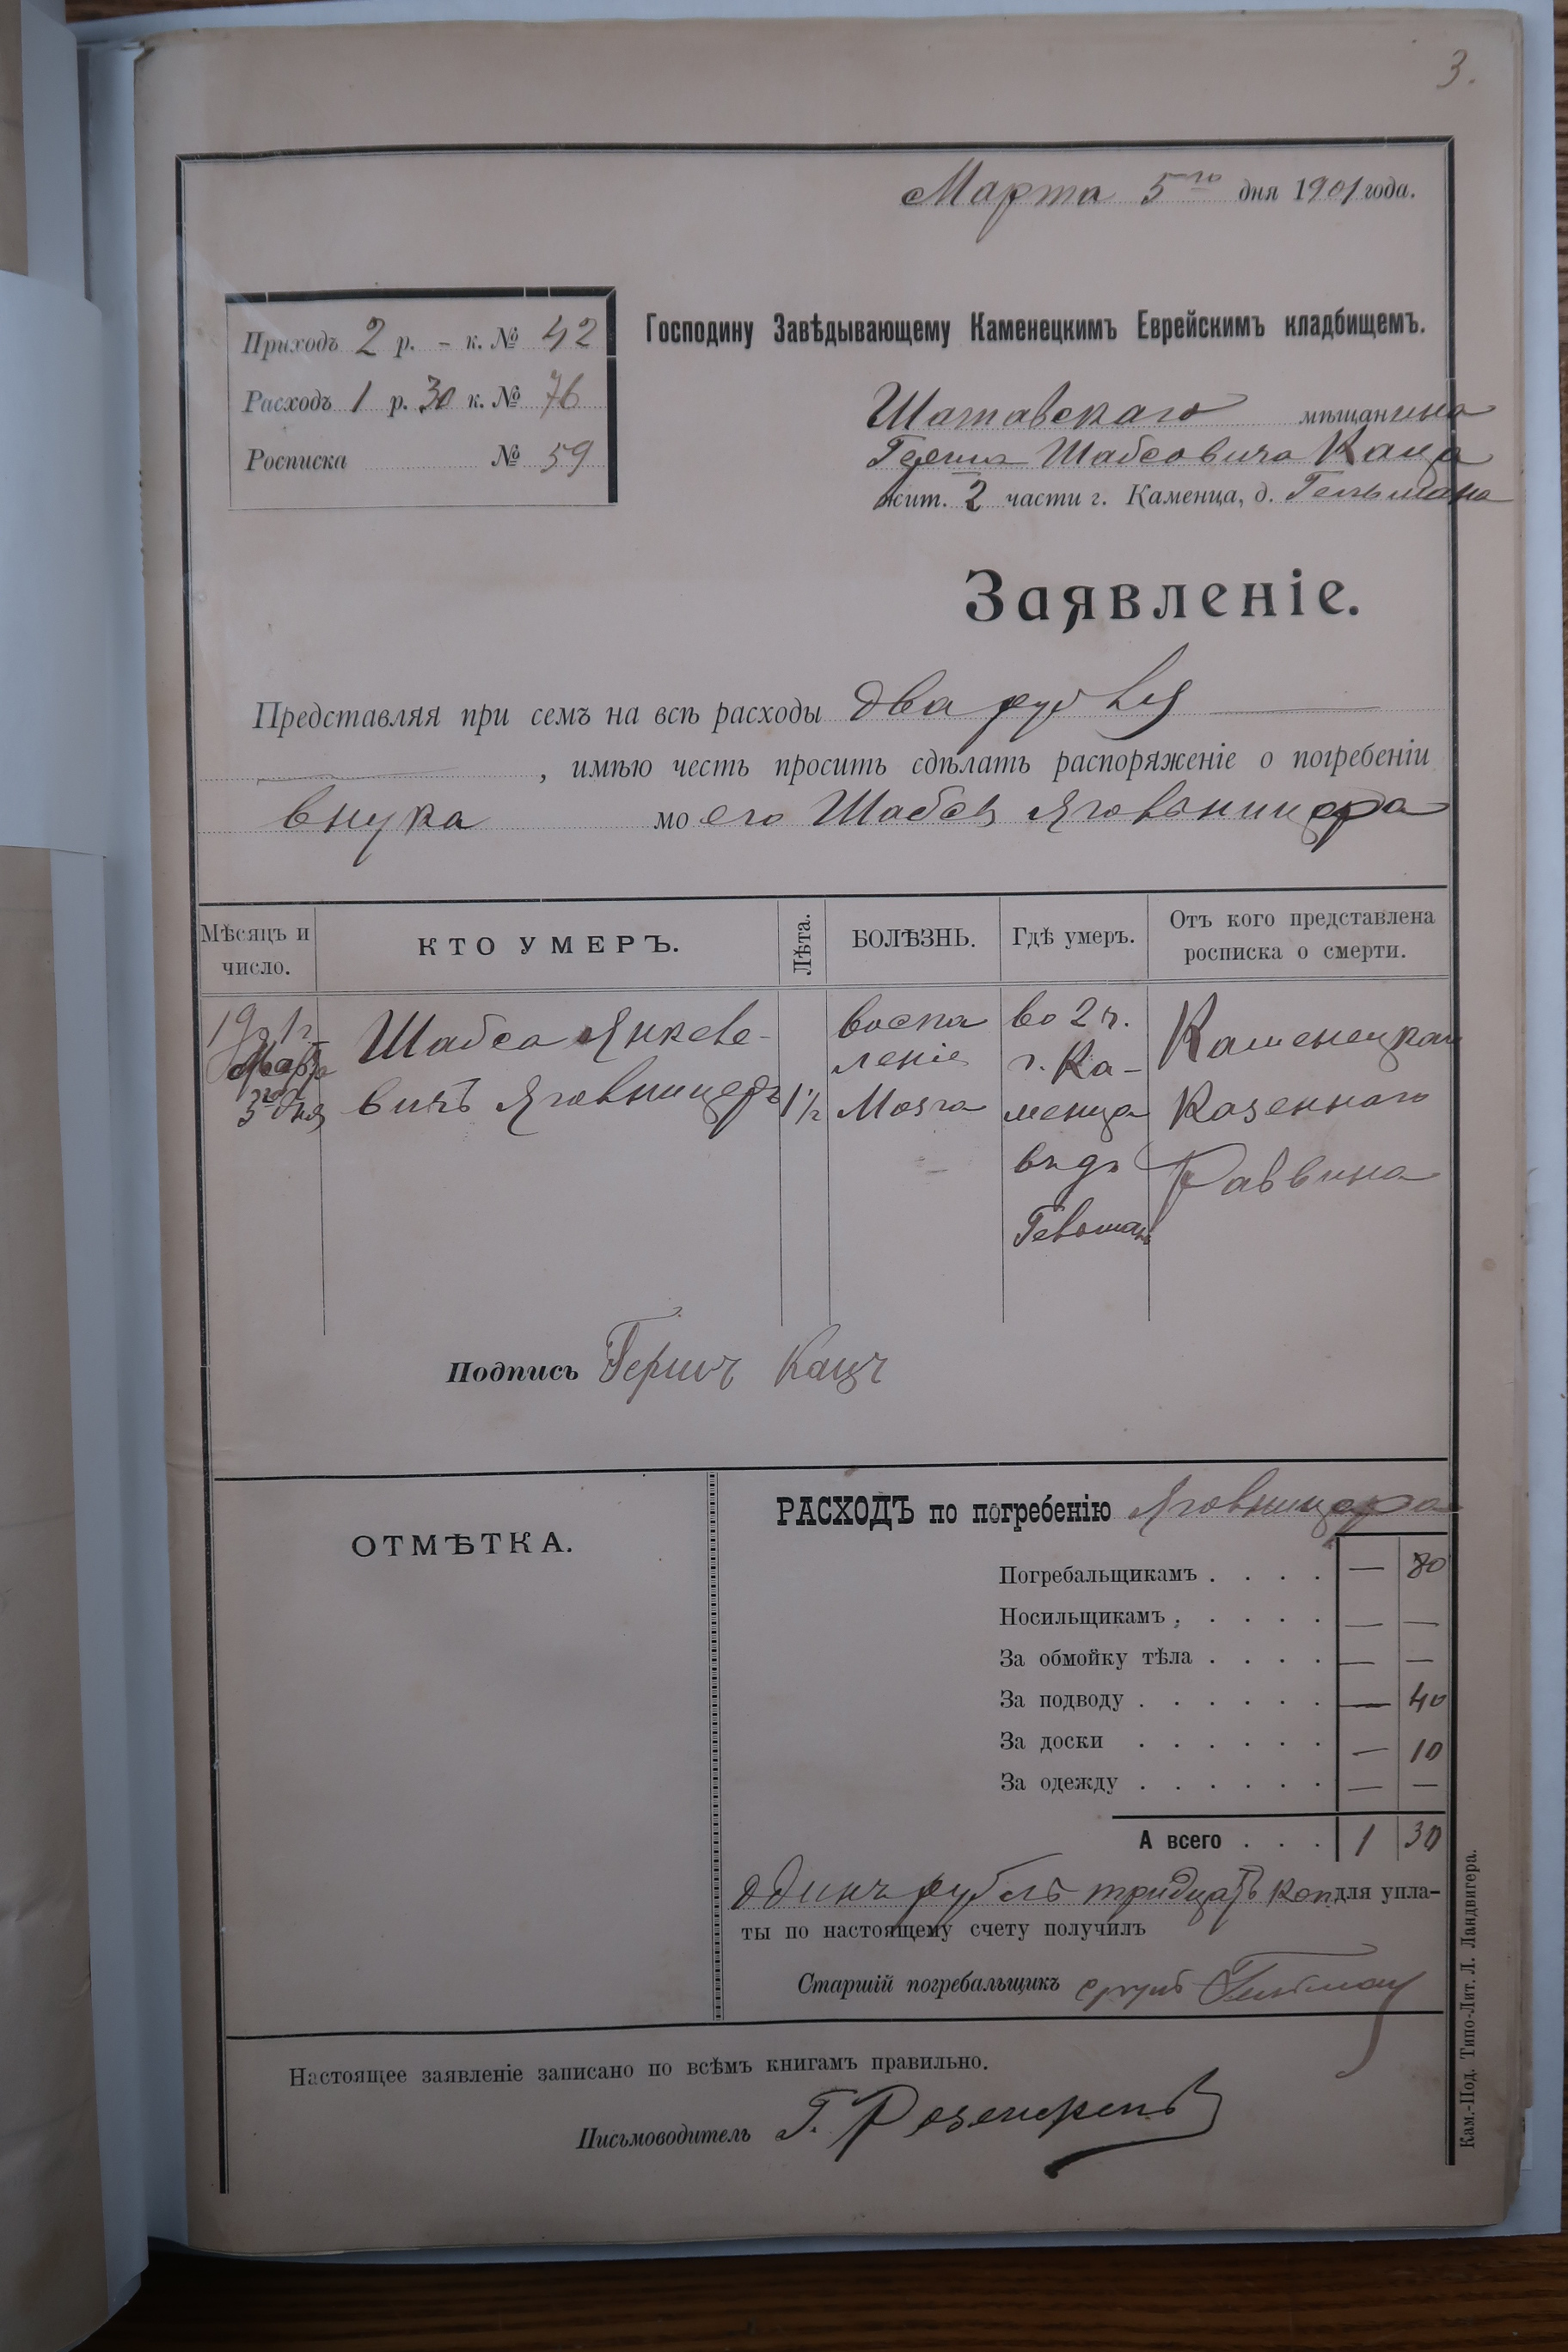 3.
Марта 5го дня 1901 года.
Приходъ 2 р. – к. № 42
Расходъ 1 р. 30 к. № 76
Росписка № 59
Господину Завѣдывающему Каменецкимъ Еврейскимъ кладбищемъ.
Шатавскаго мѣщанина
Герша Шабсовича Каца
жит. 2 части г. Каменца, д.
Заявленіе.
Представляя при семъ на всѣ расходы два рубля
, имѣю честь просить сдѣлать распоряженіе о погребеніи
внука моего Шабса Яговницера
Мѣсяцъ и число.
КТО УМЕРЪ.
Лѣта.
БОЛѢЗНЬ.
Гдѣ умеръ.
Отъ кого представлена росписка о смерти.
1901 г.
Марта
5го дня
Шабса Янкеле-
вичъ Яговницеръ
1 1/2
воспа
леніе
Мозга
во 2 ч.
г. Ка-
менца
въ д.
Каменецкаго
Казеннаго
Раввина
Подпись Гершъ Кацъ
ОТМѢТКА.
РАСХОДЪ по погребенію Яговницера
Погребальщикамъ . . . . — 80
Носильщикамъ . . . . — —
За обмойку тѣла . . . . — —
За подводу . . . . . . — 40
За доски . . . . . . — 10
За одежду . . . . . . — —
А всего . . . 1 30
Одинъ рубль тридцать коп для упла-
ты по настоящему счету получилъ
Старшій погребальщикъ
Настоящее заявленіе записано по всѣмъ книгамъ правильно.
Письмоводитель Г.
Кам.-Под. Типо-Лит. Л. Ландвигера.